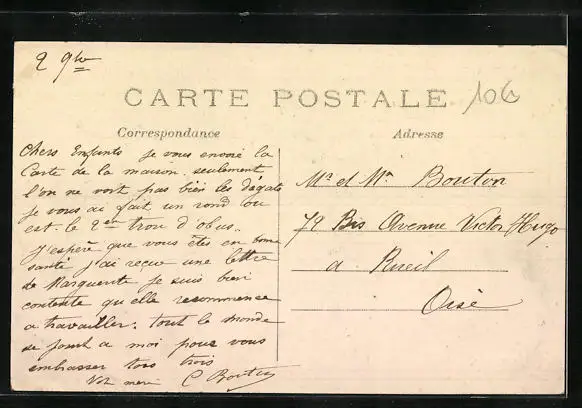 2 9bre
CARTE POSTALE
106
Correspondance
Adresse
Chers Enfants je vous envoie la
Carte de la maison, seulement
l'on ne voit pas bien les degats
je vous ai fait un rond ou
est le 2em trou d'obus..
J'espère que vous êtes en bonne
santé j'ai reçue une lettre
de Marguerite je suis bien
contente qu'elle recommence
a travailler. tout le monde
se joint a moi pour vous
embrasser tous trois
Vot mere C Bouton
Mr et Mm Bouton
79 Bis Avenue Victor Hugo
a Rueil
Oise